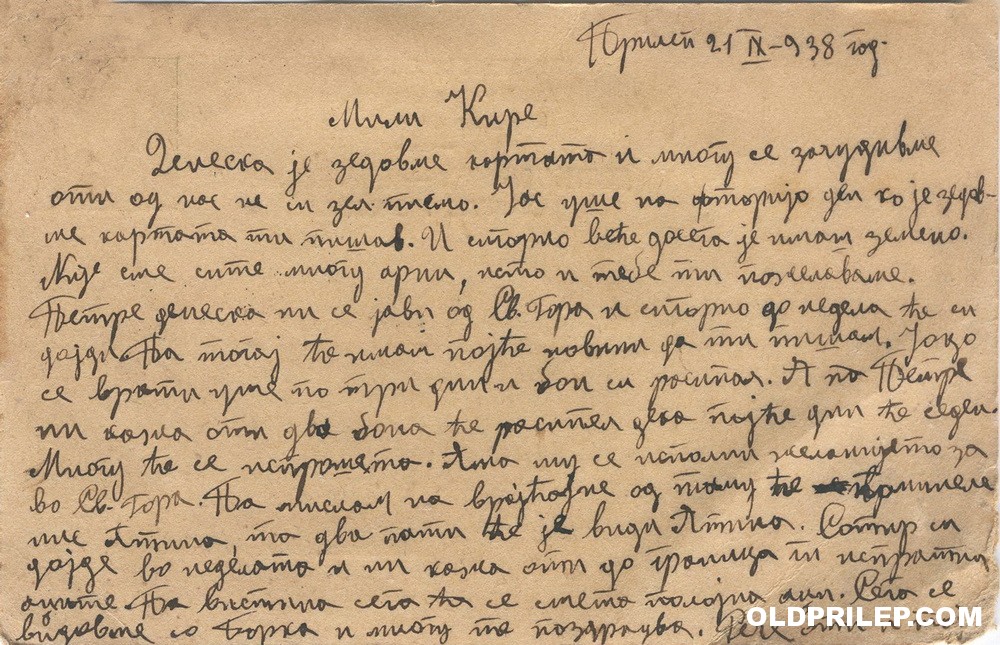 Прилеп 21 IX-938 год.
Мили Кире
Денеска је зедовме картата и многу се зачудивме
оти од нас не си зел писмо. Јас уше на фторијо ден ко је зедов-
ме картата ти пишав. И сигурно веће досега је имаш земено.
Ние сме сите многу арни, исто и тебе ти пожелаваме.
Петре денеска ни се јави од Св. Гора и сигурно до недела ће си
дојди. Па тогај ће имам појће новини да ти пишам.
се врати уше по три дни и бои си расипал. А Петре
ни кажа оти два боја ће расипел дека појће дни ће седел.
Многу ће се испромета. Ама му се исполни желанијето за
во Св. Гора. Па мислам на врајћајне од тому ће
Атина, та два пати ће је види Атина. Сотир си
дојде во неделата и ни кажа оти до граница ги испратил
дците. Па вистина сега ће се смета полојна Сега се
видовме со Борка и многу те поздравува.
OLDPRILEP.COM